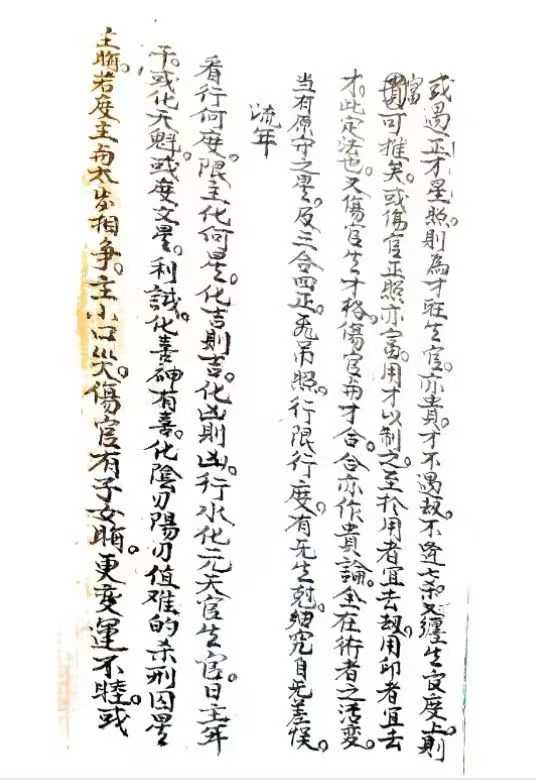 或遇正才星照。則為才旺生官。亦貴。才不遇劫。不逢七杀又纏生官度上則
富貴可推矣。或傷官正照亦富。用才以制之。至於用者宜去劫。用印者宜去
才。此定法也。又傷官生才格。傷官与才合。合亦作貴論。全在術者之活變。
当有原守之星。及三合四正。飛吊照。行限行度。有无生尅。細究自无差悮。
流年
看行何度。限主化何星。化吉則吉。化凶則凶。行水化元天官生官日主年
干。或化天魁。或度文星。利試。化善神有喜。化陰刃陽刃值难的杀刑囚星
主晦。若度主与太岁相争。主小口災。傷官有子女晦。更变運不睦。或